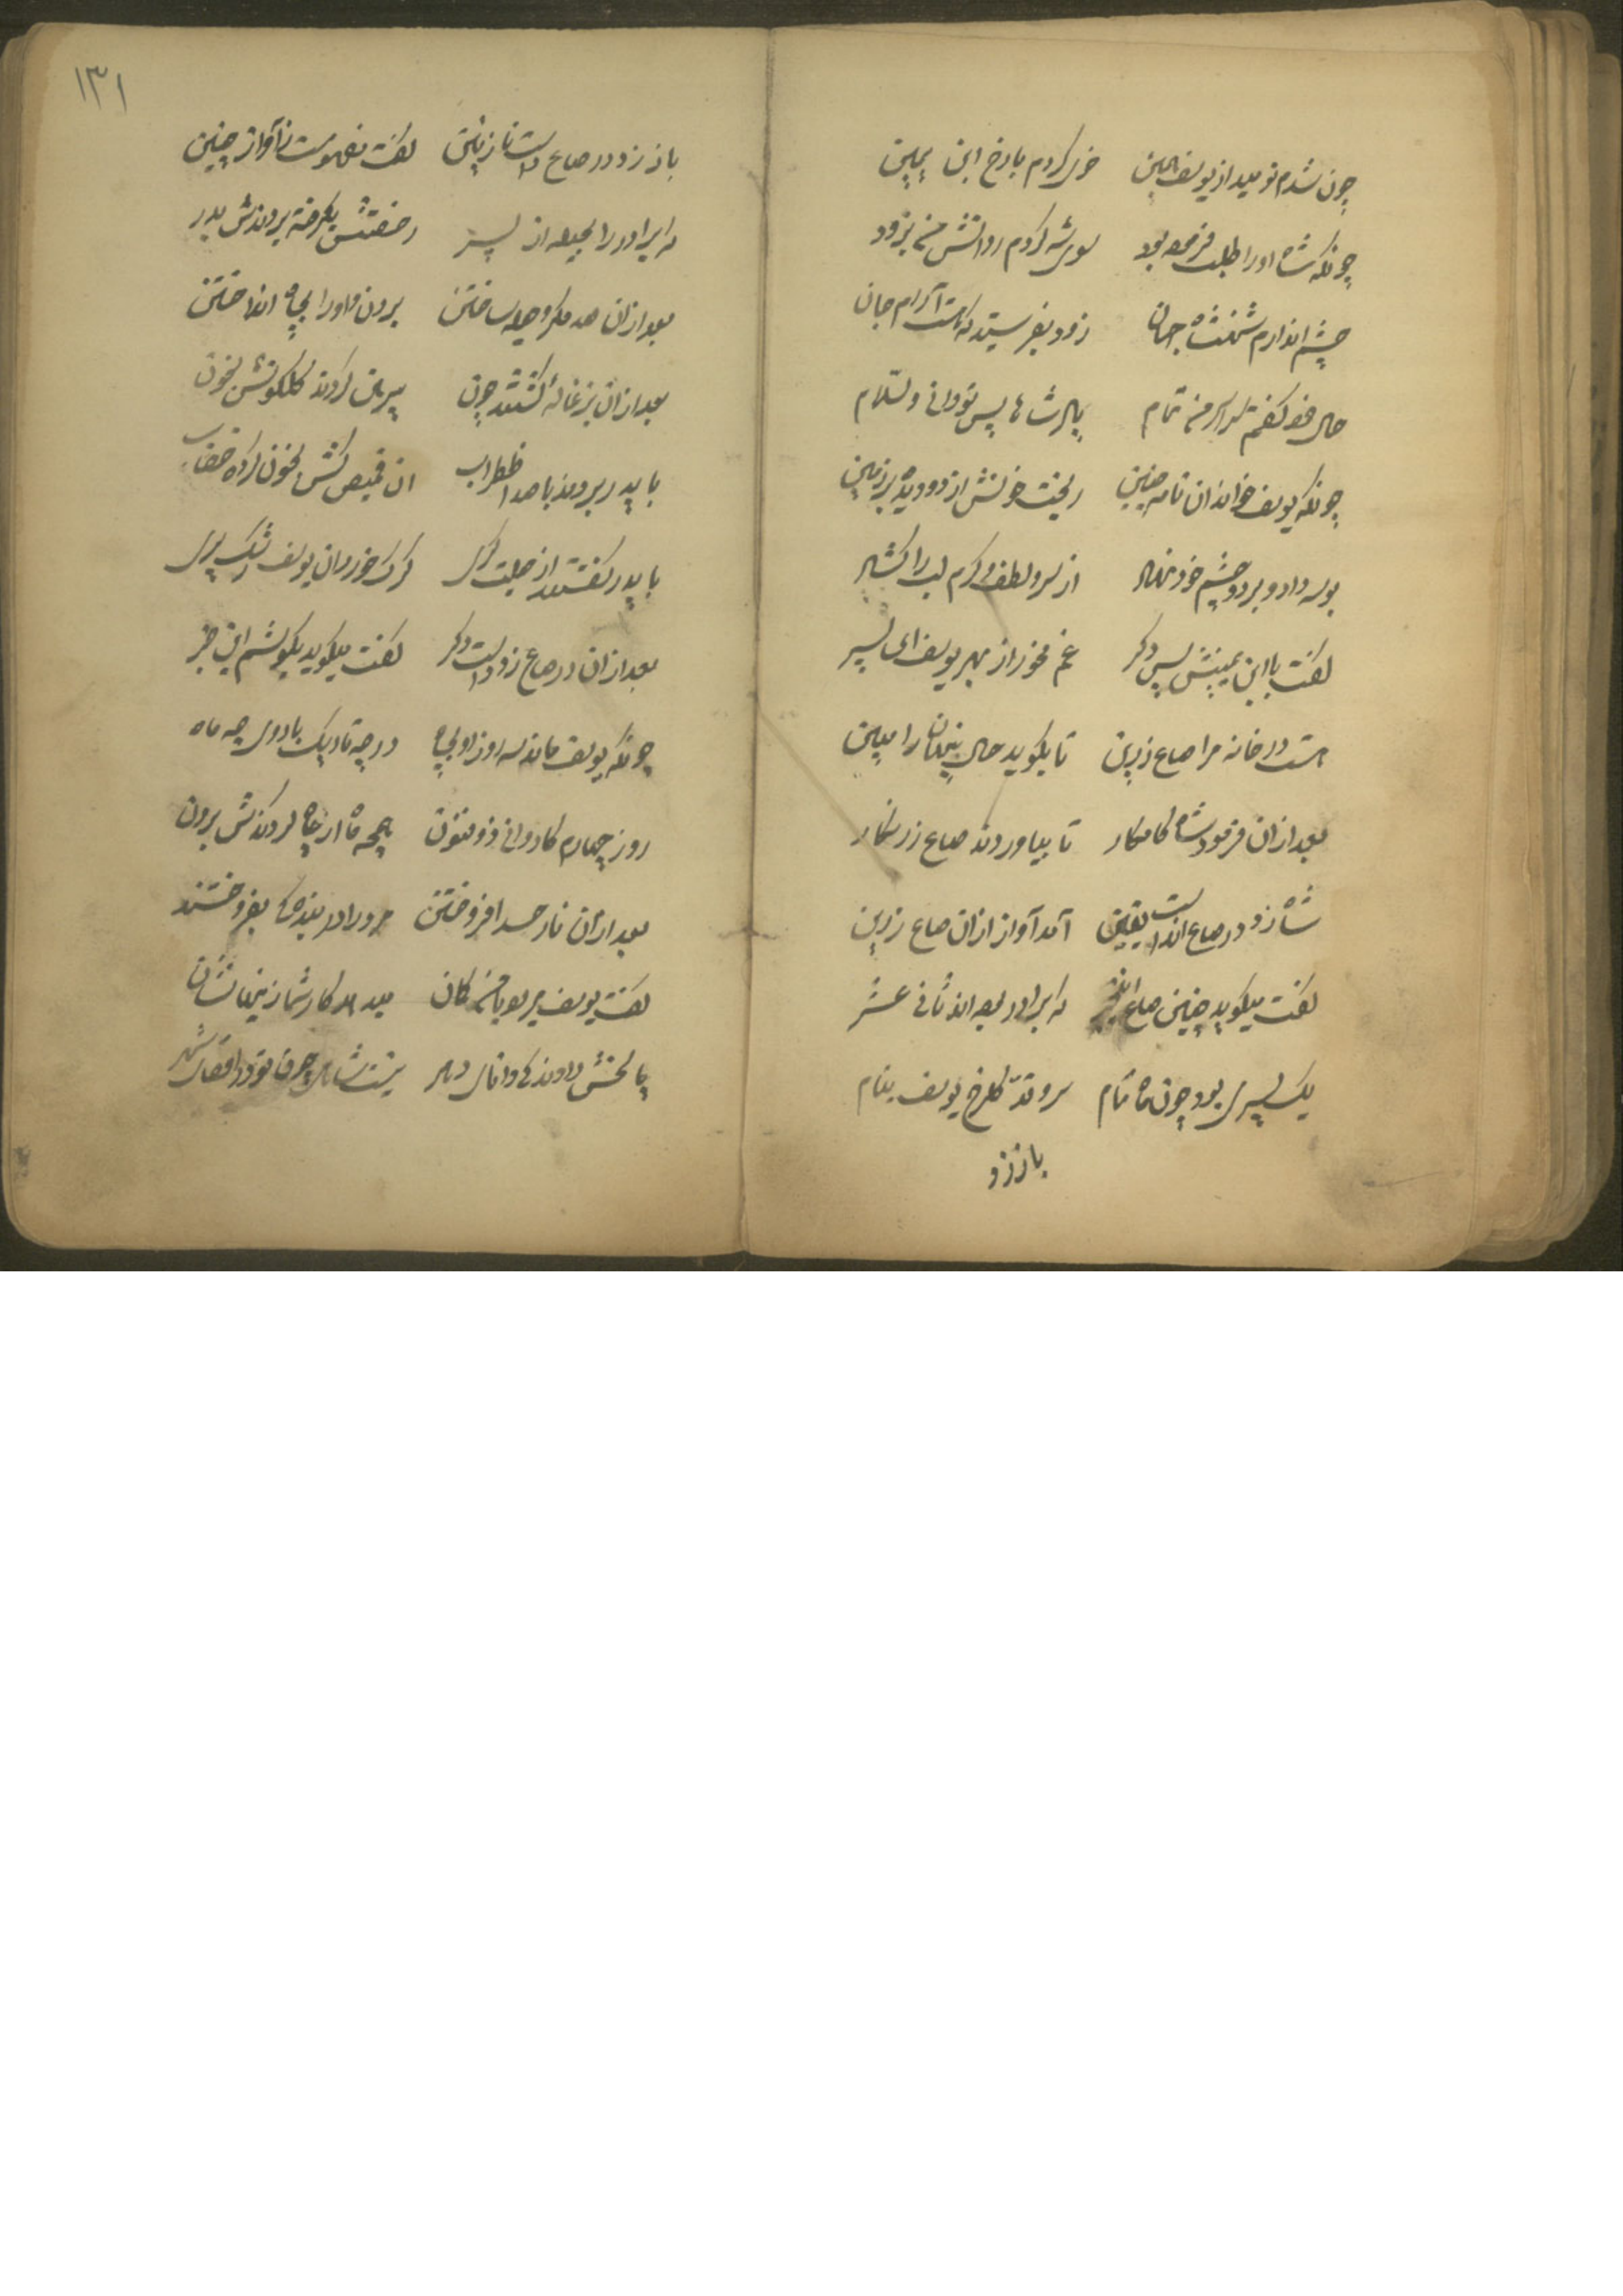 چون شدم نومید از یوسف همین خوی کردم بارخ ابن یمین
چونکه شاه اورا طلب فرموده بود سوی شه کردم روانش من بزود
چشم اندارم شهنشاه جهان زود بفرستید که هست آرام جان
حال خود کفتم سراسر من تمام پادشاها پس تو دانی والسلام
چونکه یوسف خواند ان نامه چنین ریخت خونش از دو دیده بر زمین
بوسه داد و بر دو چشم خود نهاد از سر و لطف و کرم لب را کشاد
کفت با ابن یمینش پس دکر غم مخور از بهر یوسف ای پسر
هست در خانه مرا صاع زرین تا بکوید حال پنهان را مبین
بعد ازان فرمود شاه کامکار تا بیاوردند صاع زرنکار
شاه زد در صاع اندست یقین آمد آواز ازان صاع زرین
کفت میکوید چنین صاع که برادر بوده اند ثانی عشر
یک پسر بود چون ماه تمام سرو قد کلرخ یوسف بنام
باز زد
۱۳۱
باز زد در صاع دست نازنین کفت آواز چنین
که برادر را بحیله از پسر رخصتش بکرفته بردندش بدر
بعد ازان صد مکر و حیله ساختن بردن و اورا بچاه انداختن
بعد ازان بزغاله کشتند چون پیرهن کردند کلکونش بخون
با پدر بردند با صد اظطراب ان قمیص کش بخون کرده خضاب
با پدر کفتند از حیلت کری کرک خورد ان یوسف رشک پری
بعد ازان در صاع زد دست دکر کفت میکوید بکوشم این خبر
چونکه یوسف ماند سه روز او بچاه در چه تاریک با روی چه ماه
روز چهارم کاروانی ذوفنون همچه ماه از چاه کردندش برون
بعد ازان نار حسد افروختن مرورا در بندکی بفروختند
کفت یوسف